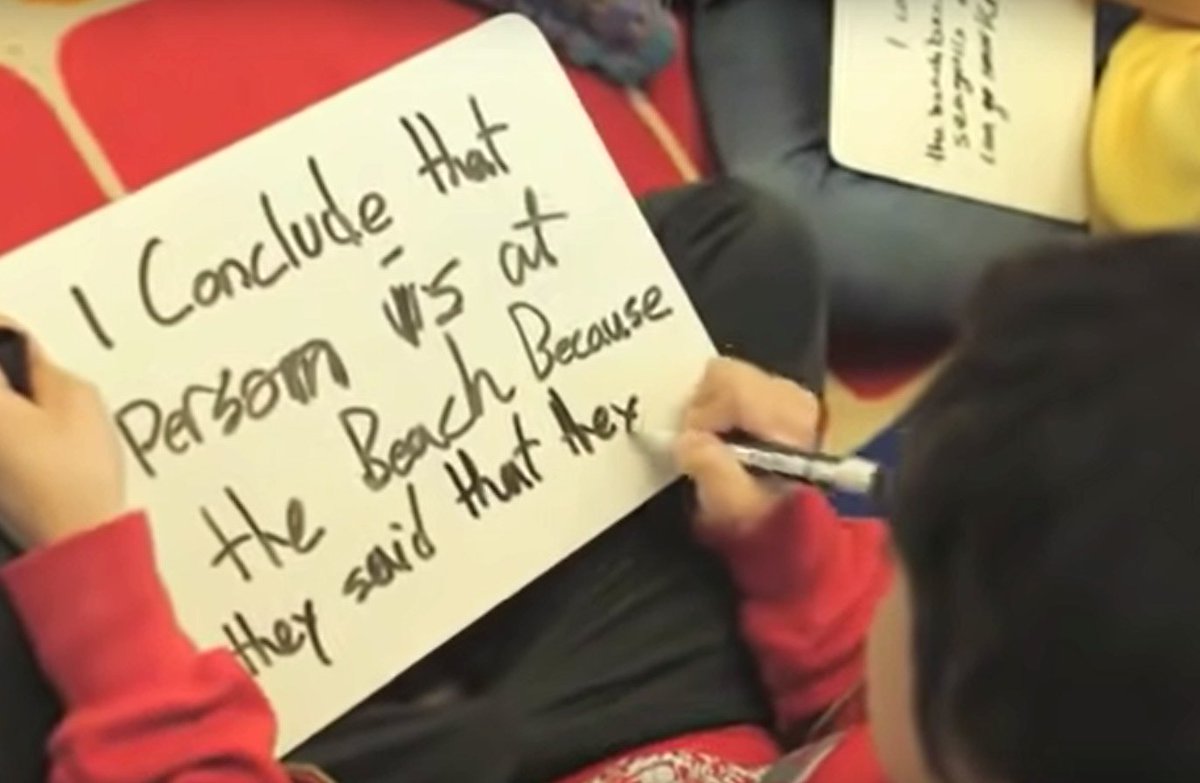 I Conclude that
person is at
the Beach Because
they said that they
I
the
I can go